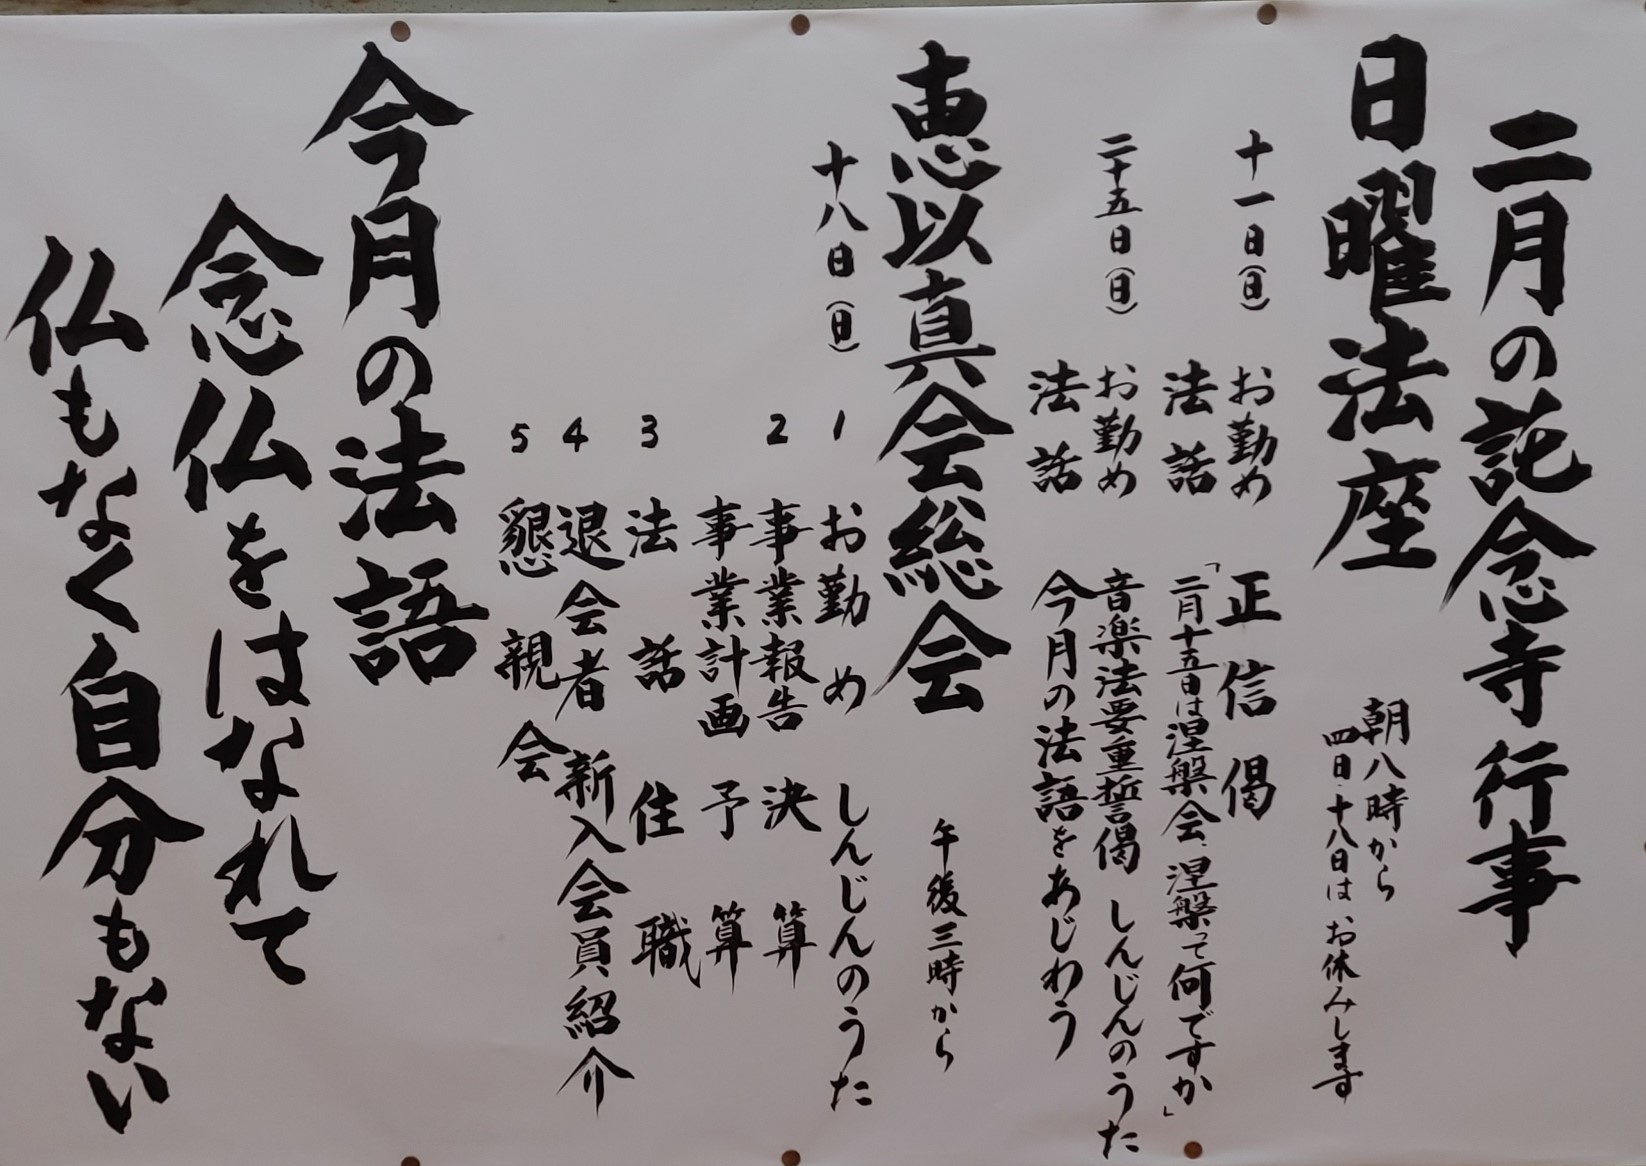 二月の託念寺行事
日曜法座
朝八時から
四日・十八日はお休みします
十一日(日) お勤め 正信偈
法話 「二月十五日は涅槃会、涅槃って何ですか」
二十五日(日) お勤め 音楽法要重誓偈 しんじんのうた
法話 今月の法語をあじわう
恵以真会総会 午後三時から
十八日(日) 1 お勤め しんじんのうた
2 事業報告 決算
事業計画 予算
3 法話 住職
4 退会者 新入会員紹介
5 懇親会
今月の法語
念仏をはなれて
仏もなく自分もない